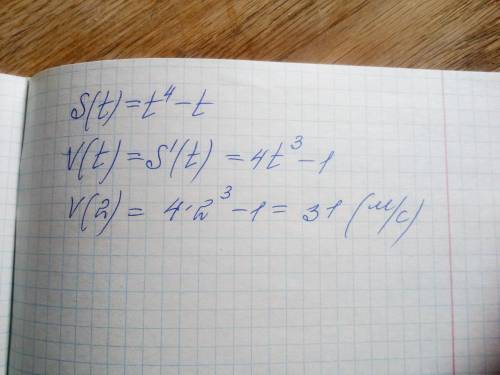 S(t) = t⁴ - t
V(t) = S'(t) = 4t³ - 1
V(2) = 4·2³ - 1 = 31 (м/с)